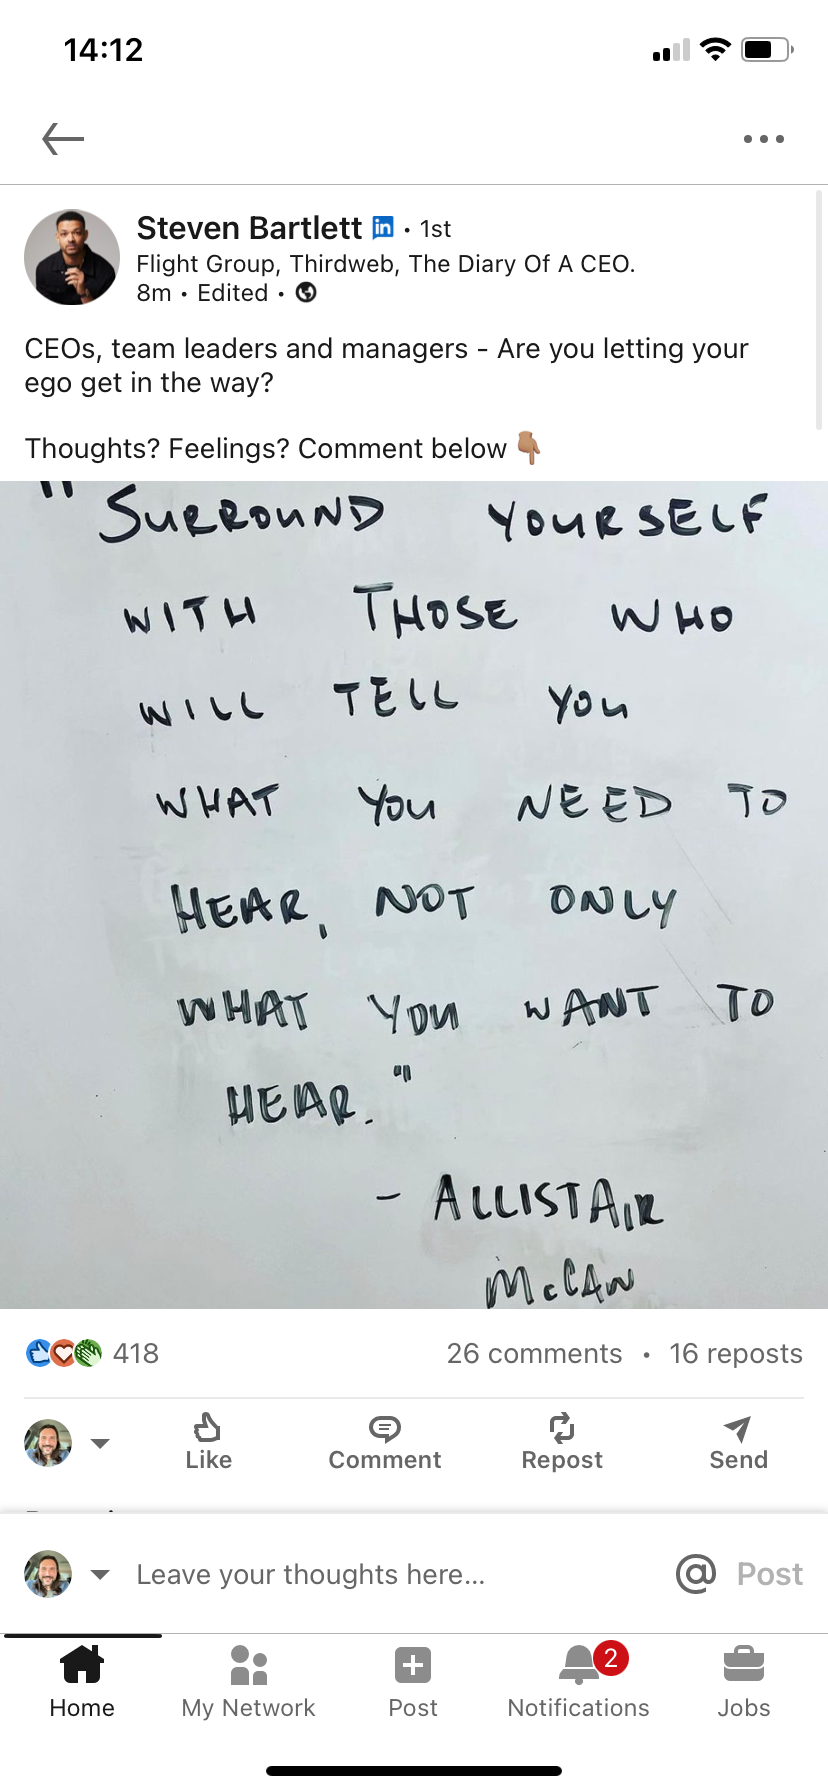 14:12
Steven Bartlett in • 1st
Flight Group, Thirdweb, The Diary Of A CEO.
8m • Edited •
CEOs, team leaders and managers - Are you letting your
ego get in the way?
Thoughts? Feelings? Comment below
"SURROUND YOURSELF
WITH THOSE WHO
WILL TELL YOU
WHAT YOU NEED TO
HEAR, NOT ONLY
WHAT YOU WANT TO
HEAR."
- ALLISTAIR
McCAW
418 26 comments • 16 reposts
Like Comment Repost Send
Leave your thoughts here... @ Post
2
Home My Network Post Notifications Jobs